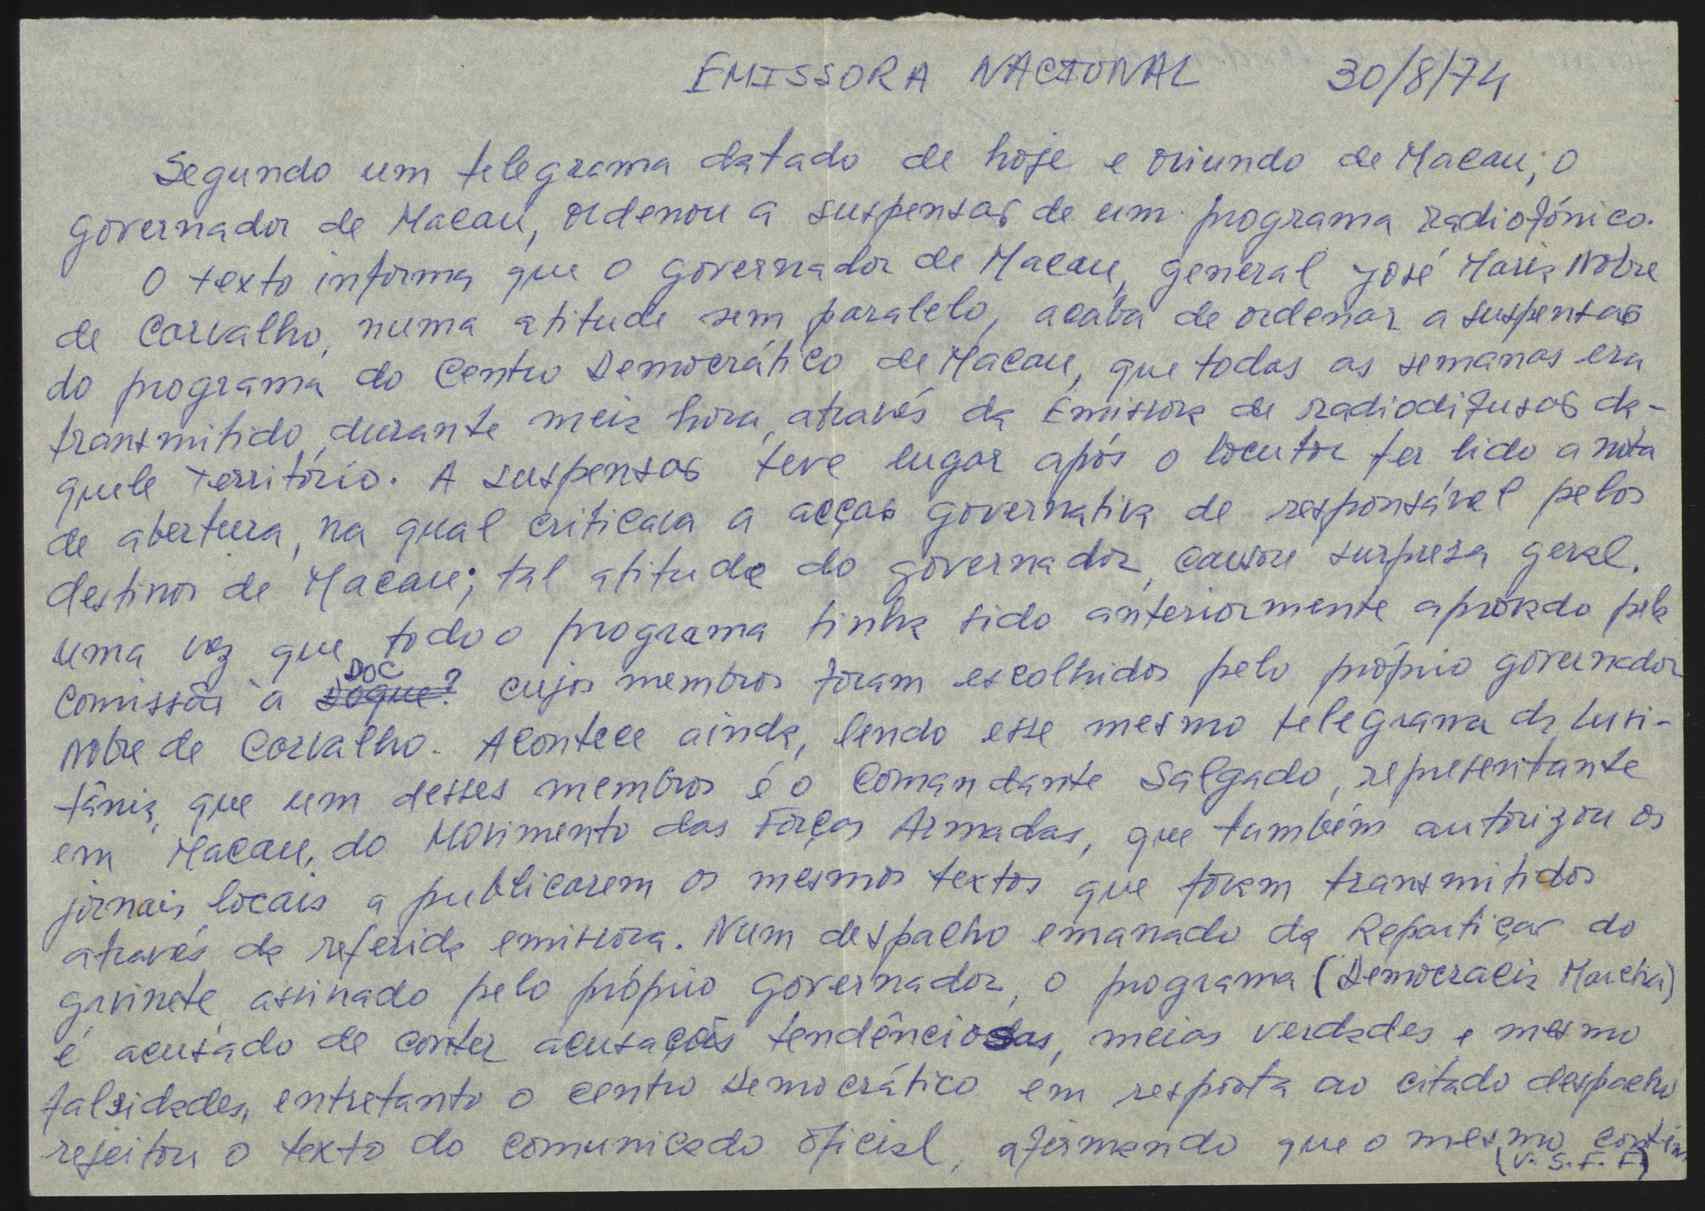 EMISSORA NACIONAL 30/8/74
Segundo um telegrama datado de hoje e oriundo de Macau, o
governador de Macau, ordenou a suspensão de um programa radiofónico.
O texto informa que o governador de Macau, general José Maria Nobre
de Carvalho, numa atitude sem paralelo, acaba de ordenar a suspensão
do programa do Centro Democrático de Macau, que todas as semanas era
transmitido, durante meia hora, através da Emissora de radiodifusão da-
quele território. A suspensão teve lugar após o locutor ter lido a nota
de abertura, na qual criticava a acção governativa de responsável pelos
destinos de Macau; tal atitude do governador, causou surpresa geral.
uma vez que todo o programa tinha sido anteriormente aprovado pela
DOC
Comissão à Doque? cujos membros foram escolhidos pelo próprio governador
Nobre de Carvalho. Acontece ainda, lendo esse mesmo telegrama da Lusi-
tânia, que um desses membros é o Comandante Salgado, representante
em Macau, do Movimento das Forças Armadas, que também autorizou os
jornais locais a publicarem os mesmos textos que foram transmitidos
através da referida emissora. Num despacho emanado da Repartição do
gavinete assinado pelo próprio governador, o programa (Democracia Marcha)
é acusado de conter acusações tendênciosas, meias verdades e mesmo
falsidades, entretanto o centro Democrático em resposta ao citado despacho
rejeitou o texto do comunicado oficial, afirmando que o mesmo contém
(V. S. F. F.)